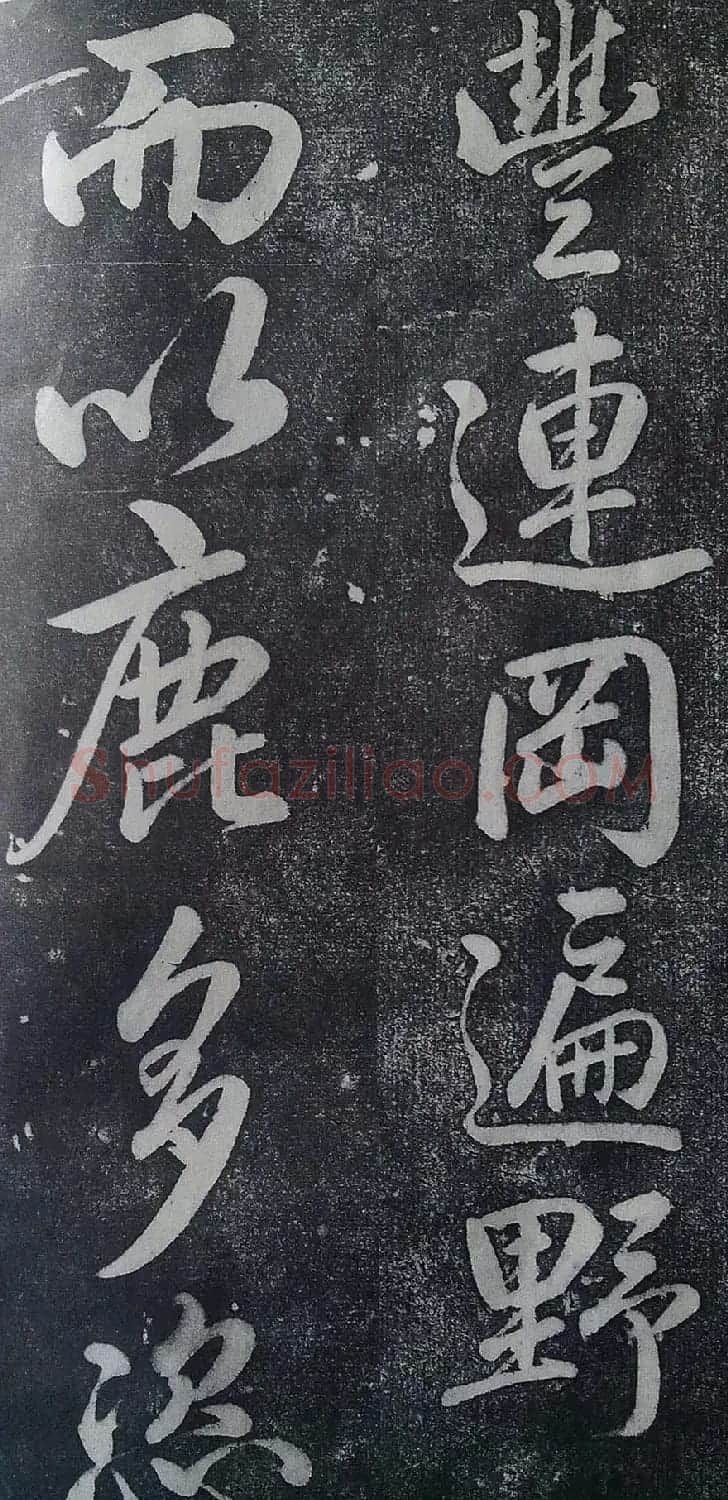 豐連岡遍野
而以鹿多
Shufaziliao.COM